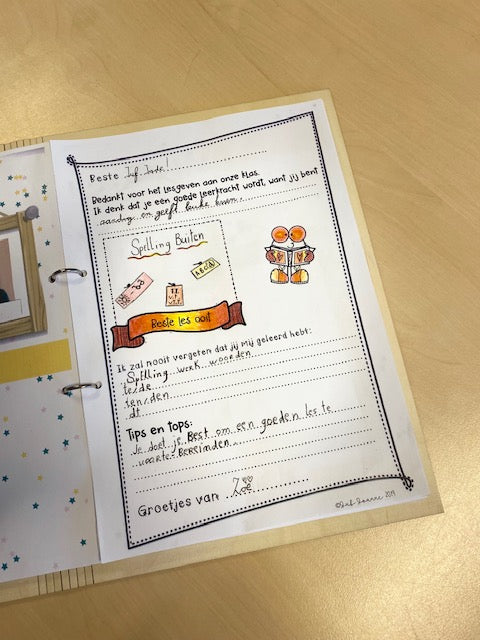 Beste Juf Jade!
Bedankt voor het lesgeven aan onze klas.
Ik denk dat je een goede leerkracht wordt, want jij bent
aardig en geeft leuke
Spelling Buiten
ABCD
Beste les ooit
Ik zal nooit vergeten dat jij mij geleerd hebt:
Spelling werk woorden
te/de
ten/den
dt
Tips en tops:
Je doet je Best om een goeden les te
Groetjes van Zoë
©Juf Joanne 2019